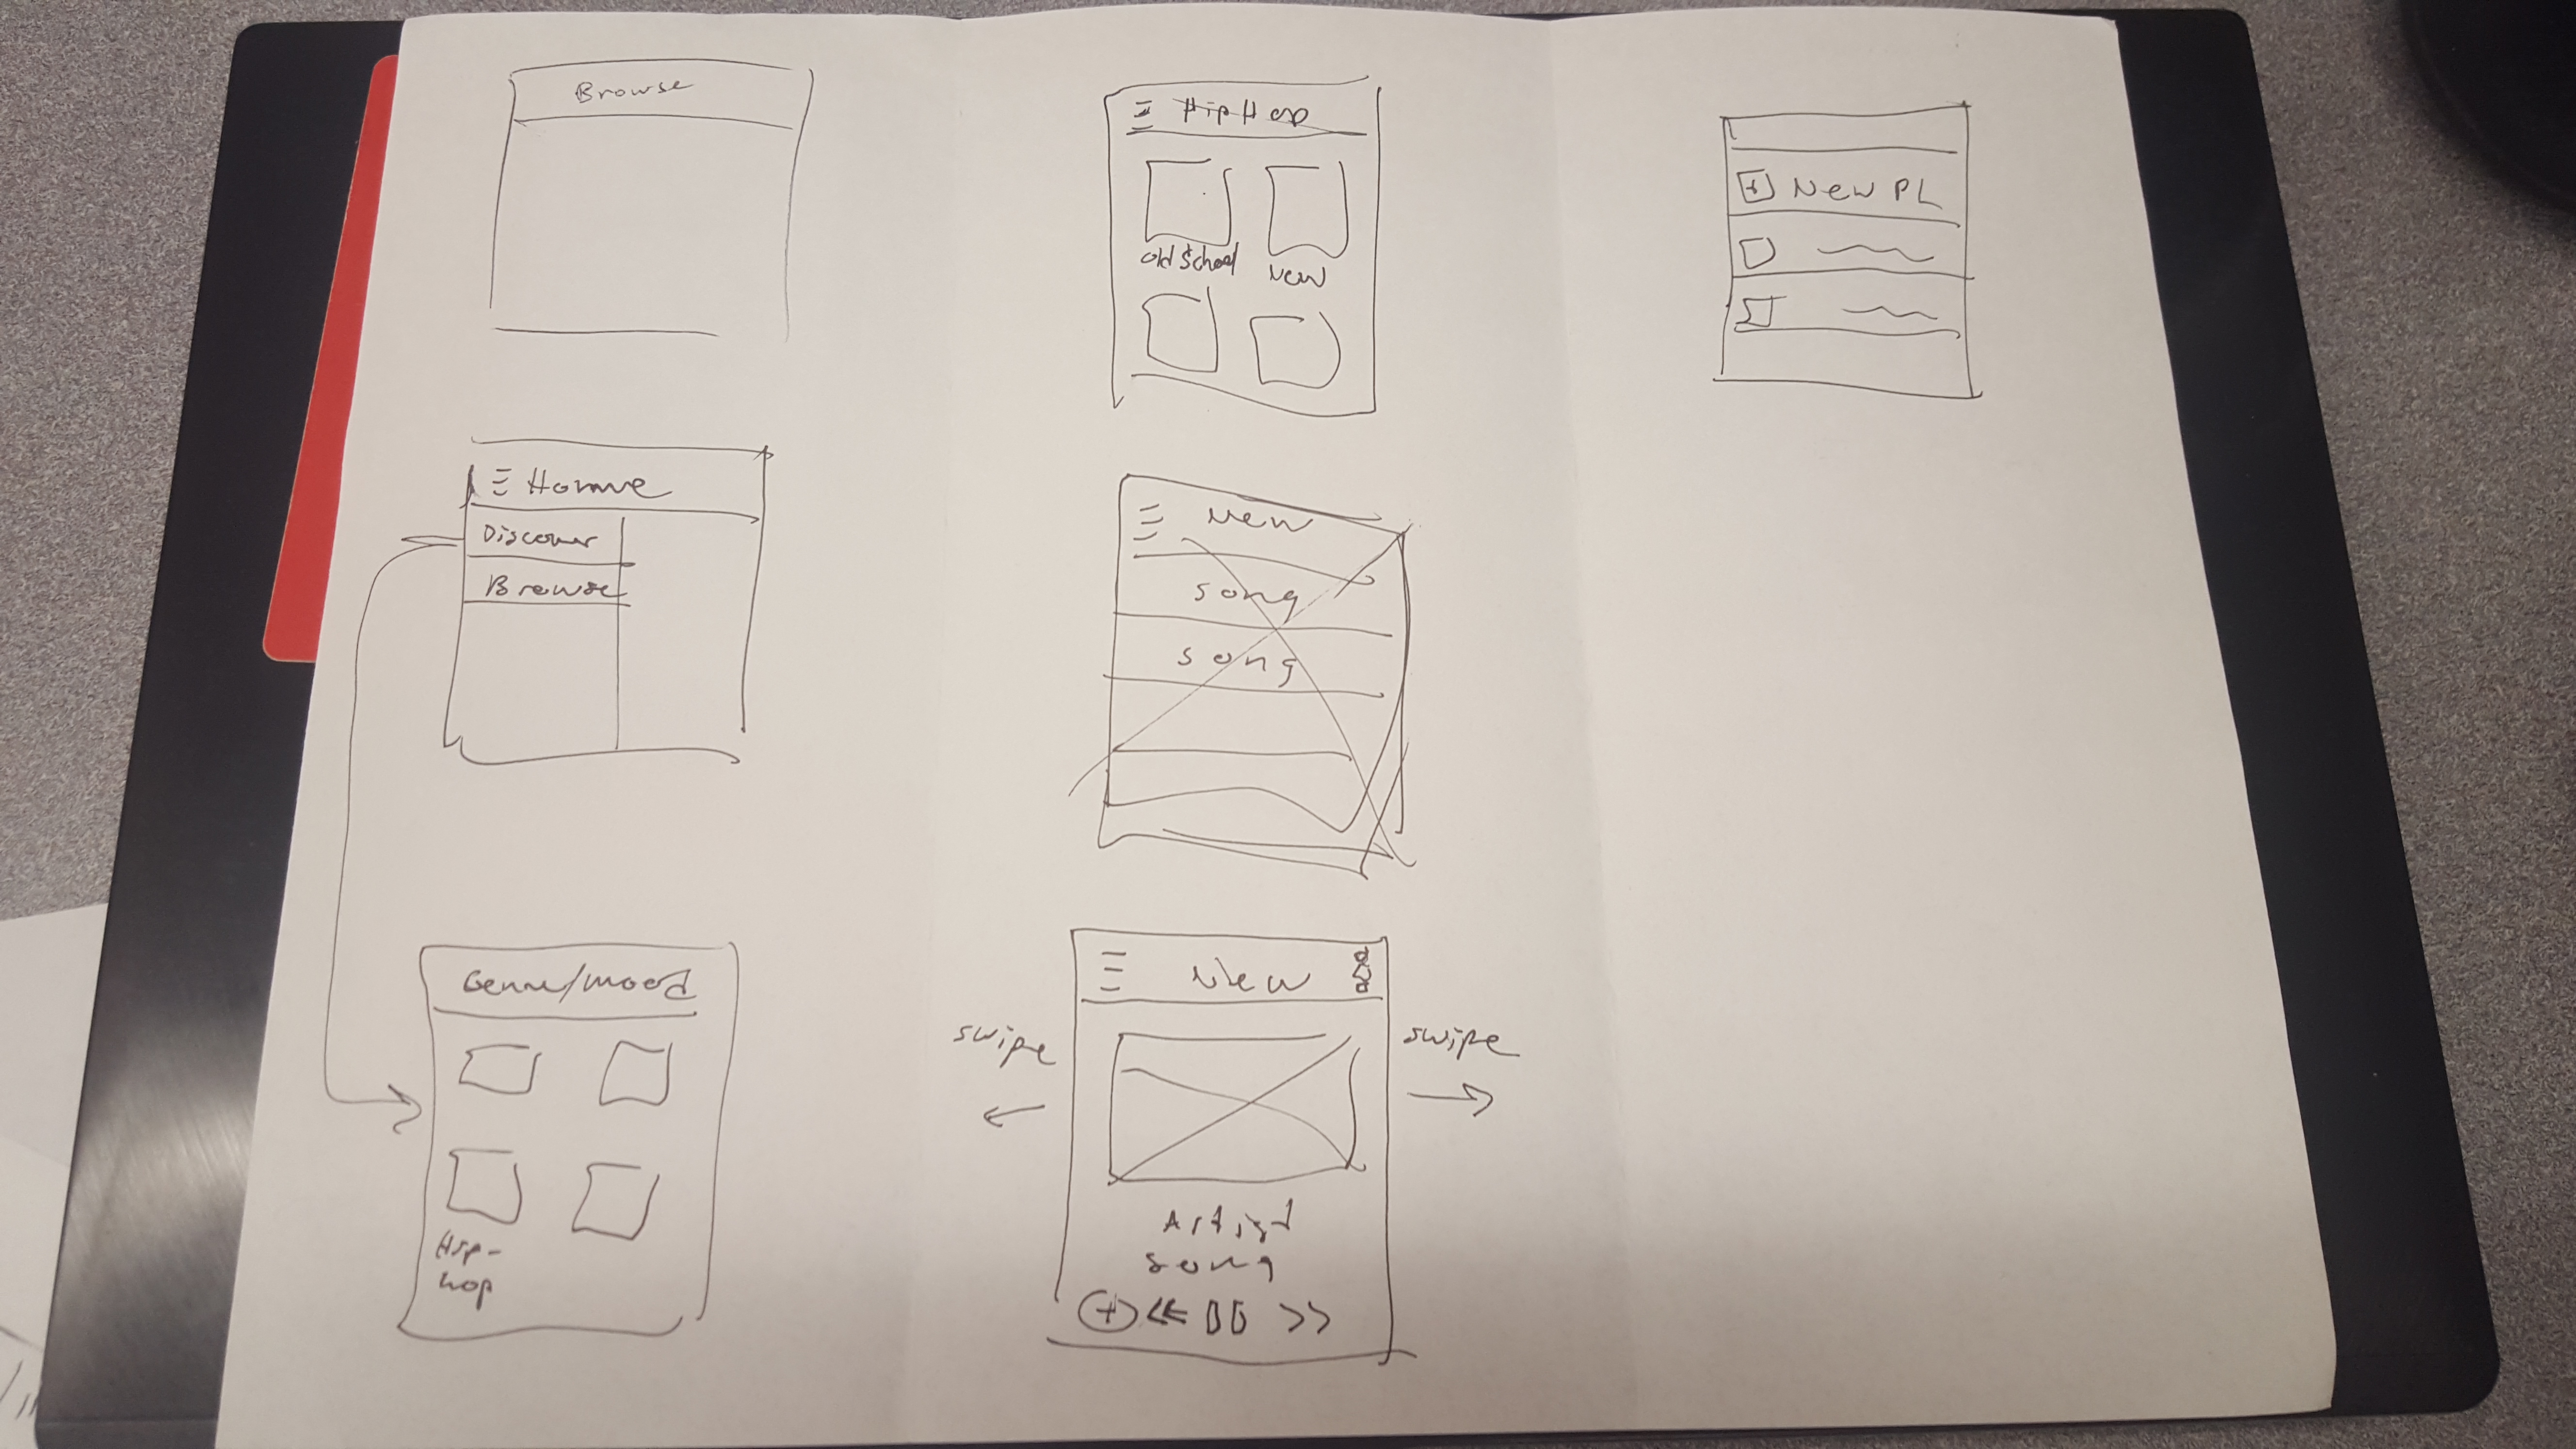 Browse
Home
Discover
Browse
Genre/mood
Hip-
hop
Hip Hop
old school
New
New
song
song
New
swipe
swipe
Artist
song
+ << >>
+ New PL